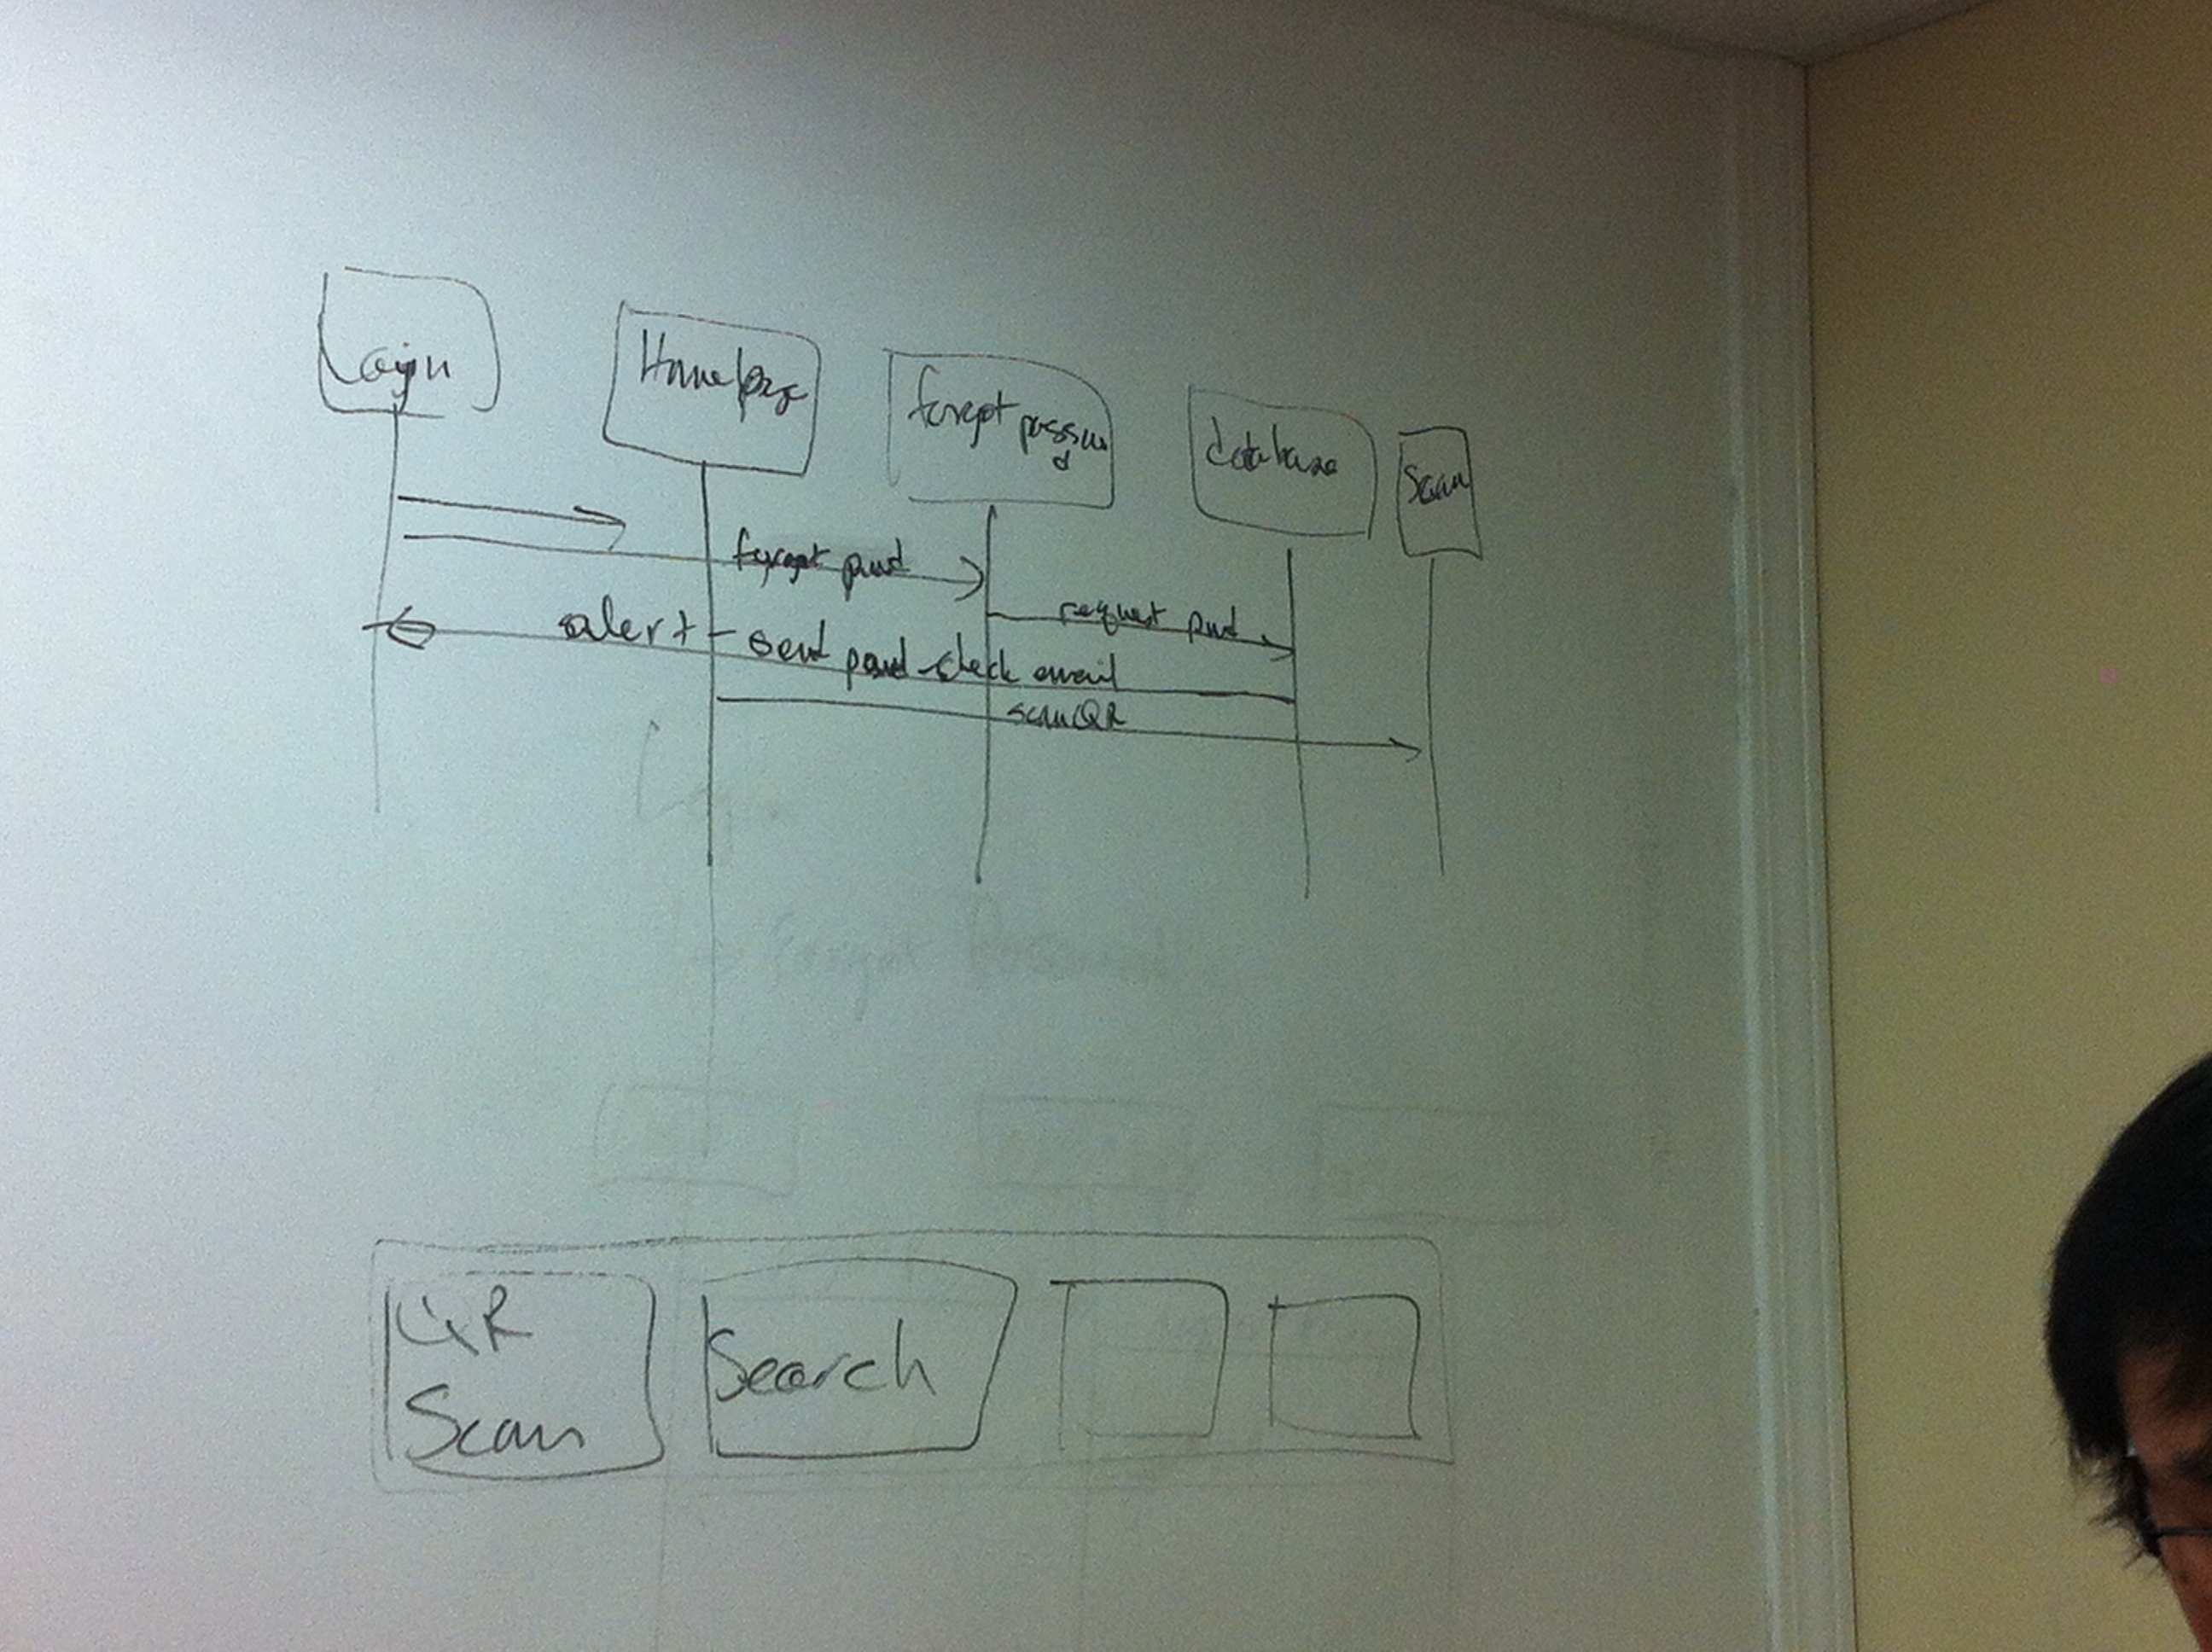 Login
Homepage
forgot passwd
database
Scan
forgot pwd
request pwd
alert - send pswd - check email
scanQR
Forgot Password
QR
Scan
Search